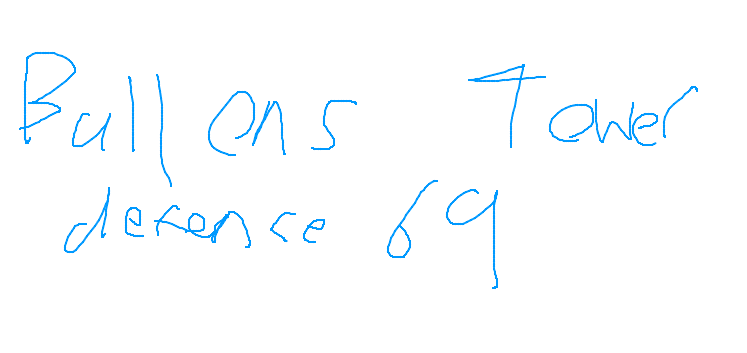 Ballons Tower
defence 69